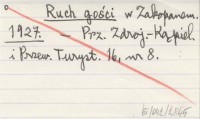 Ruch gości w Zakopanem.
1927. — Prz. Zdroj.-Kąpiel.
i Przew. Turyst. 16, nr 8.